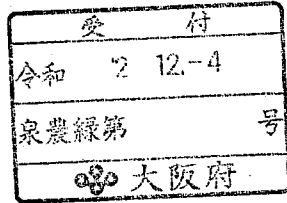 受付
令和 2 12.-4
泉農緑第 号
大阪府